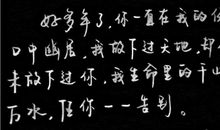 好多年了,你一直在我的伤
口中幽居,我放下过天地,却
未放下过你,我生命里的千山
万水,任你一一告别。